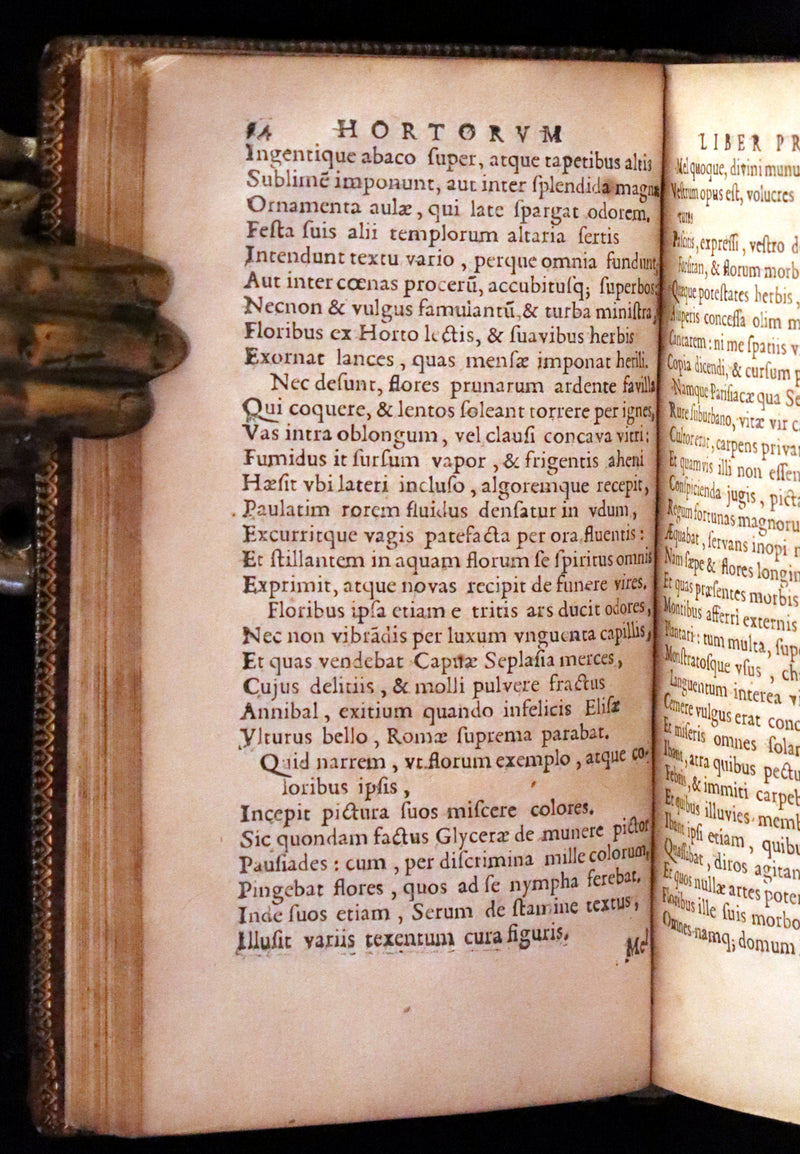 84 HORTORVM
Ingentique abaco ſuper, atque tapetibus altis
Sublimē imponunt, aut inter ſplendida magnæ
Ornamenta aulæ, qui late ſpargat odorem,
Feſta ſuis alii templorum altaria ſertis
Intendunt textu vario, perque omnia fundunt,
Aut inter cœnas procerū, accubituſq; ſuperbos:
Necnon & vulgus famulantū, & turba miniſtra,
Floribus ex Horto lectis, & ſuavibus herbis
Exornat lances, quas menſæ imponat herili.
Nec deſunt, flores prunarum ardente favilla
Qui coquere, & lentos ſoleant torrere per ignes,
Vas intra oblongum, vel clauſi concava vitri;
Fumidus it ſurſum vapor, & frigentis aheni
Hæſit vbi lateri incluſo, algoremque recepit,
Paulatim rorem fluidus denſatur in vdum,
Excurritque vagis patefacta per ora fluentis:
Et ſtillantem in aquam florum ſe ſpiritus omnis
Exprimit, atque novas recipit de funere vires.
Floribus ipſa etiam e tritis ars ducit odores,
Nec non vibrādis per luxum vnguenta capillis,
Et quas vendebat Capuæ Seplaſia merces,
Cujus delitiis, & molli pulvere fractus
Annibal, exitium quando infelicis Eliſæ
Vlturus bello, Romæ ſuprema parabat.
Quid narrem, vt florum exemplo, atque co-
loribus ipſis,
Incepit pictura ſuos miſcere colores.
Sic quondam factus Glyceræ de munere pictor
Pauſiades: cum, per diſcrimina mille colorum,
Pingebat flores, quos ad ſe nympha ferebat.
Inde ſuos etiam, Serum de ſtamine textus,
Illuſit variis texentum cura figuris.
Mel
LIBER PR
Mel quoque, divini munu
Veſtrum opus eſt, volucres
Paſtis, expreſſi, veſtro d
& florum morb
Quæque poteſtates herbis,
Superis conceſſa olim m
Cantarem: ni me ſpatiis v
Copia dicendi, & curſum p
Namque Pariſiacæ qua Se
Rure ſuburbano, vitæ vir c
Cultor erat, carpens priva
Et quamvis illi non eſſen
Conſpicienda jugis, picta
Regum fortunas magnoru
Æquabat, ſervans inopi
Nam ſæpe & flores longin
Et quas præſentes morbis
Montibus afferri externis
Plantari: tum multa, ſup
Monſtratoſque vſus, ch
Languentum interea vi
Cernere vulgus erat conc
Et miſeris omnes ſolar
Ibant, atra quibus pectu
Febris, & immiti carpeb
Et quibus illuvies memb
Ibant ipſi etiam, quibu
Quaſſabat, diros agitan
Et quos nullæ artes poter
Floribus ille ſuis morbo
Omnes namq; domum